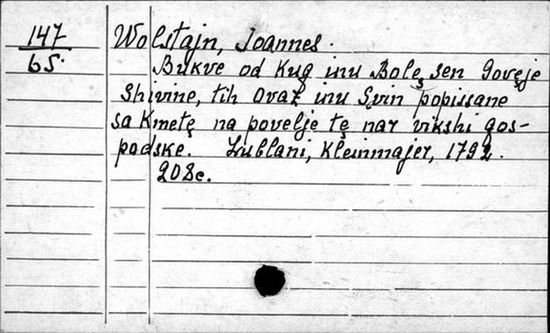 147
65.
Wolstajn, Joannes.
Bukve od Kug inu Bolę sen Govęje
Shivine, tih Ovaz inu Svin popissane
sa Kmetę na povelje tę nar vikshi gos-
podske. Lublani, Kleinmajer, 1792.
208c.